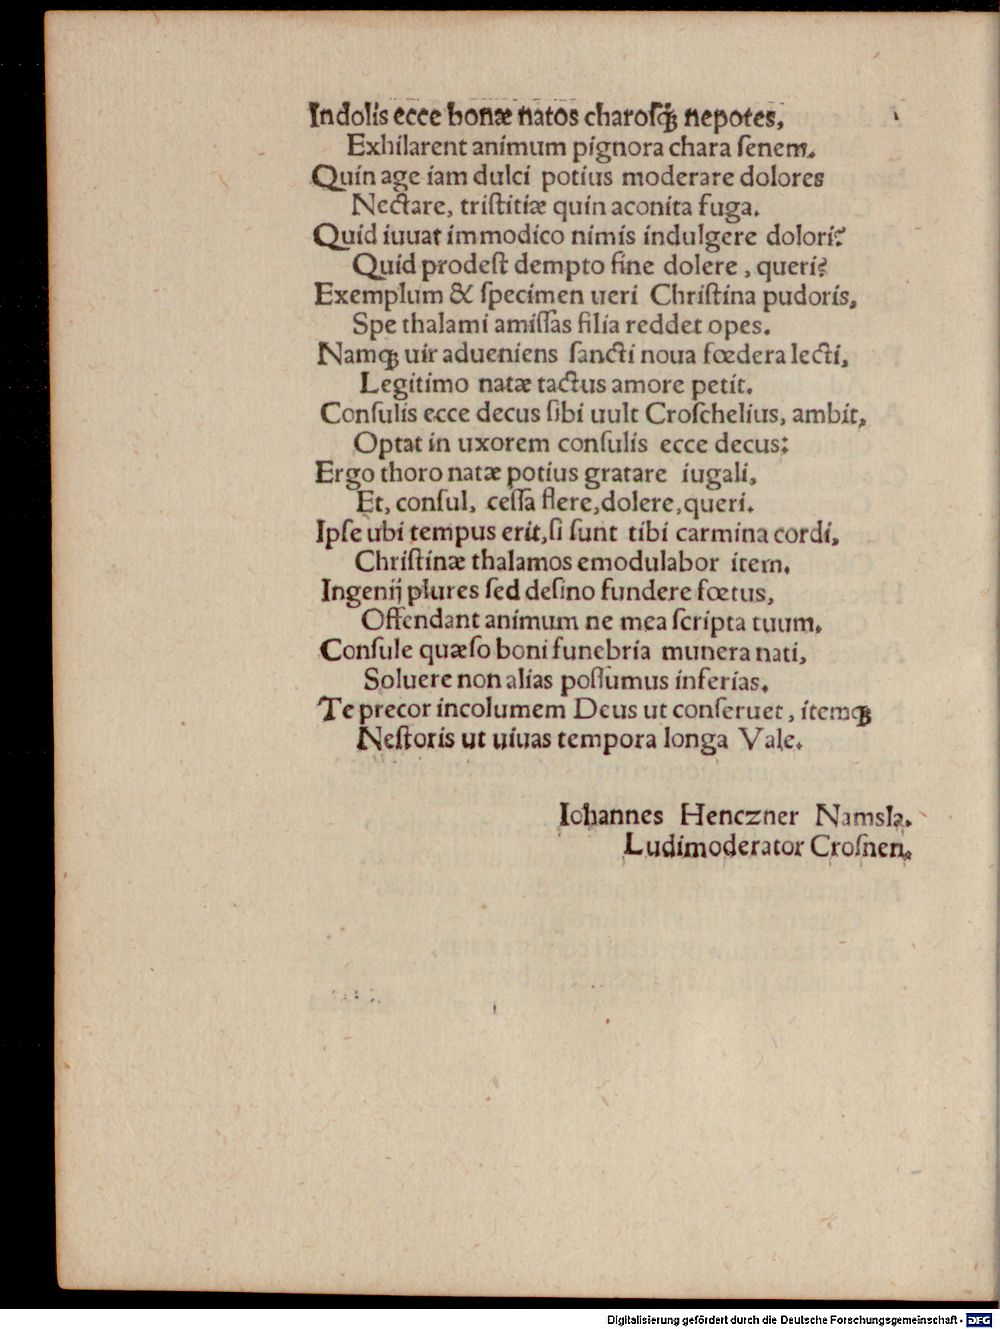 Indolis ecce bonæ natos charoſqꝫ nepotes,
Exhilarent animum pignora chara ſenem.
Quin age iam dulci potius moderare dolores
Nectare, triſtitiæ quin aconita fuga.
Quid iuuat immodico nimis indulgere dolori?
Quid prodeſt dempto fine dolere, queri?
Exemplum & ſpecimen ueri Chriſtina pudoris,
Spe thalami amiſſas filia reddet opes.
Namqꝫ uir adueniens ſancti noua fœdera lecti,
Legitimo natæ tactus amore petit.
Conſulis ecce decus ſibi uult Croſchelius, ambit,
Optat in uxorem conſulis ecce decus:
Ergo thoro natæ potius gratare iugali,
Et, conſul, ceſſa flere, dolere, queri.
Ipſe ubi tempus erit, ſi ſunt tibi carmina cordi,
Chriſtinæ thalamos emodulabor item.
Ingenij plures ſed deſino fundere fœtus,
Offendant animum ne mea ſcripta tuum.
Conſule quæſo boni funebria munera nati,
Soluere non alias poſſumus inferias.
Te precor incolumem Deus ut conſeruet, itemqꝫ
Neſtoris ut uiuas tempora longa Vale.
Iohannes Henczner Namsla.
Ludimoderator Croſnen.
Digitalisierung gefördert durch die Deutsche Forschungsgemeinschaft - DFG